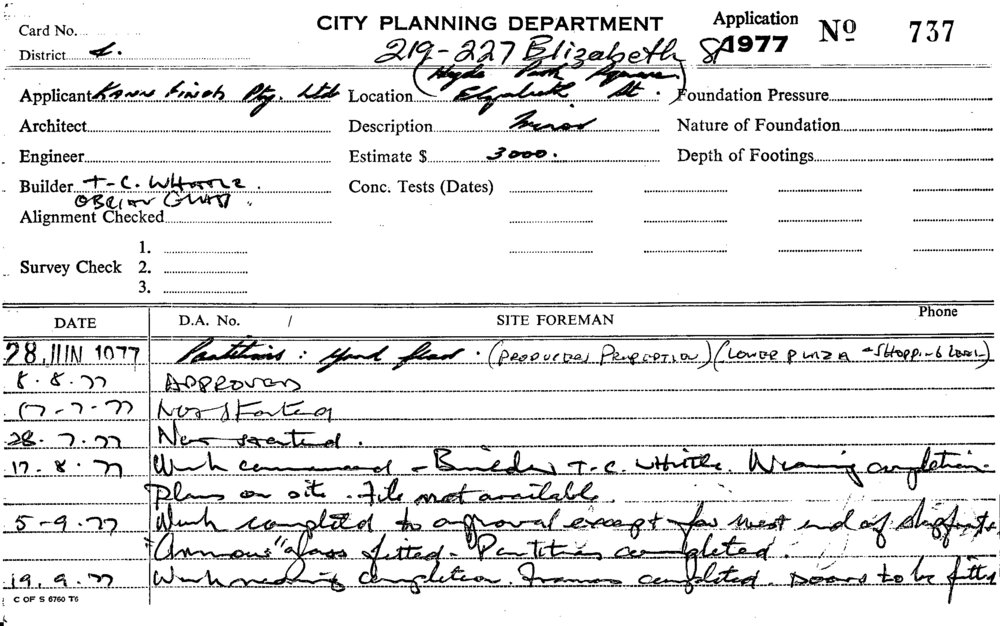 Card No.
CITY PLANNING DEPARTMENT
Application
1977
Nº 737
District 4.
219-227 Elizabeth St
(Hyde Park Square)
Applicant Kann Finch Pty. Ltd
Location Elizabeth St.
Foundation Pressure
Architect
Description Minor
Nature of Foundation
Engineer
Estimate $ 3000.
Depth of Footings
Builder T-C. Whittle
OBrien Glass
Conc. Tests (Dates)
Alignment Checked
1.
Survey Check 2.
3.
DATE D.A. No. / SITE FOREMAN Phone
28 JUN 1977 Partitions: (Producers) (Lower Plaza - Shopping Level)
8.8.77 Approved
17-7-77 Not Started
28.7.77 Not started.
17.8.77 Work commenced - Builder T-C. Whittle. Nearing completion
Plans on site. File not available.
5-9.77 Work completed to approval except for west end of shopfronts
"Armour" glass fitted - Partition completed.
19.9.77 Work nearing completion. Frames completed. Doors to be fitted
C OF S 6760 T6